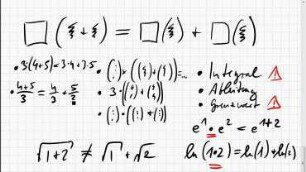 □(ξ+ξ) = □(ξ) + □(ξ)
• 3(4+5)=3·4+3·5
• (4+5)/3 = 4/3 + 5/3
• 3·((:)+(:))
• Integral ⚠
• Ableitung
• Grenzwert ⚠
e¹·e² = e¹⁺²
√(1+2) ≠ √1 + √2
ln(1·2) = ln(1)+ln(2)